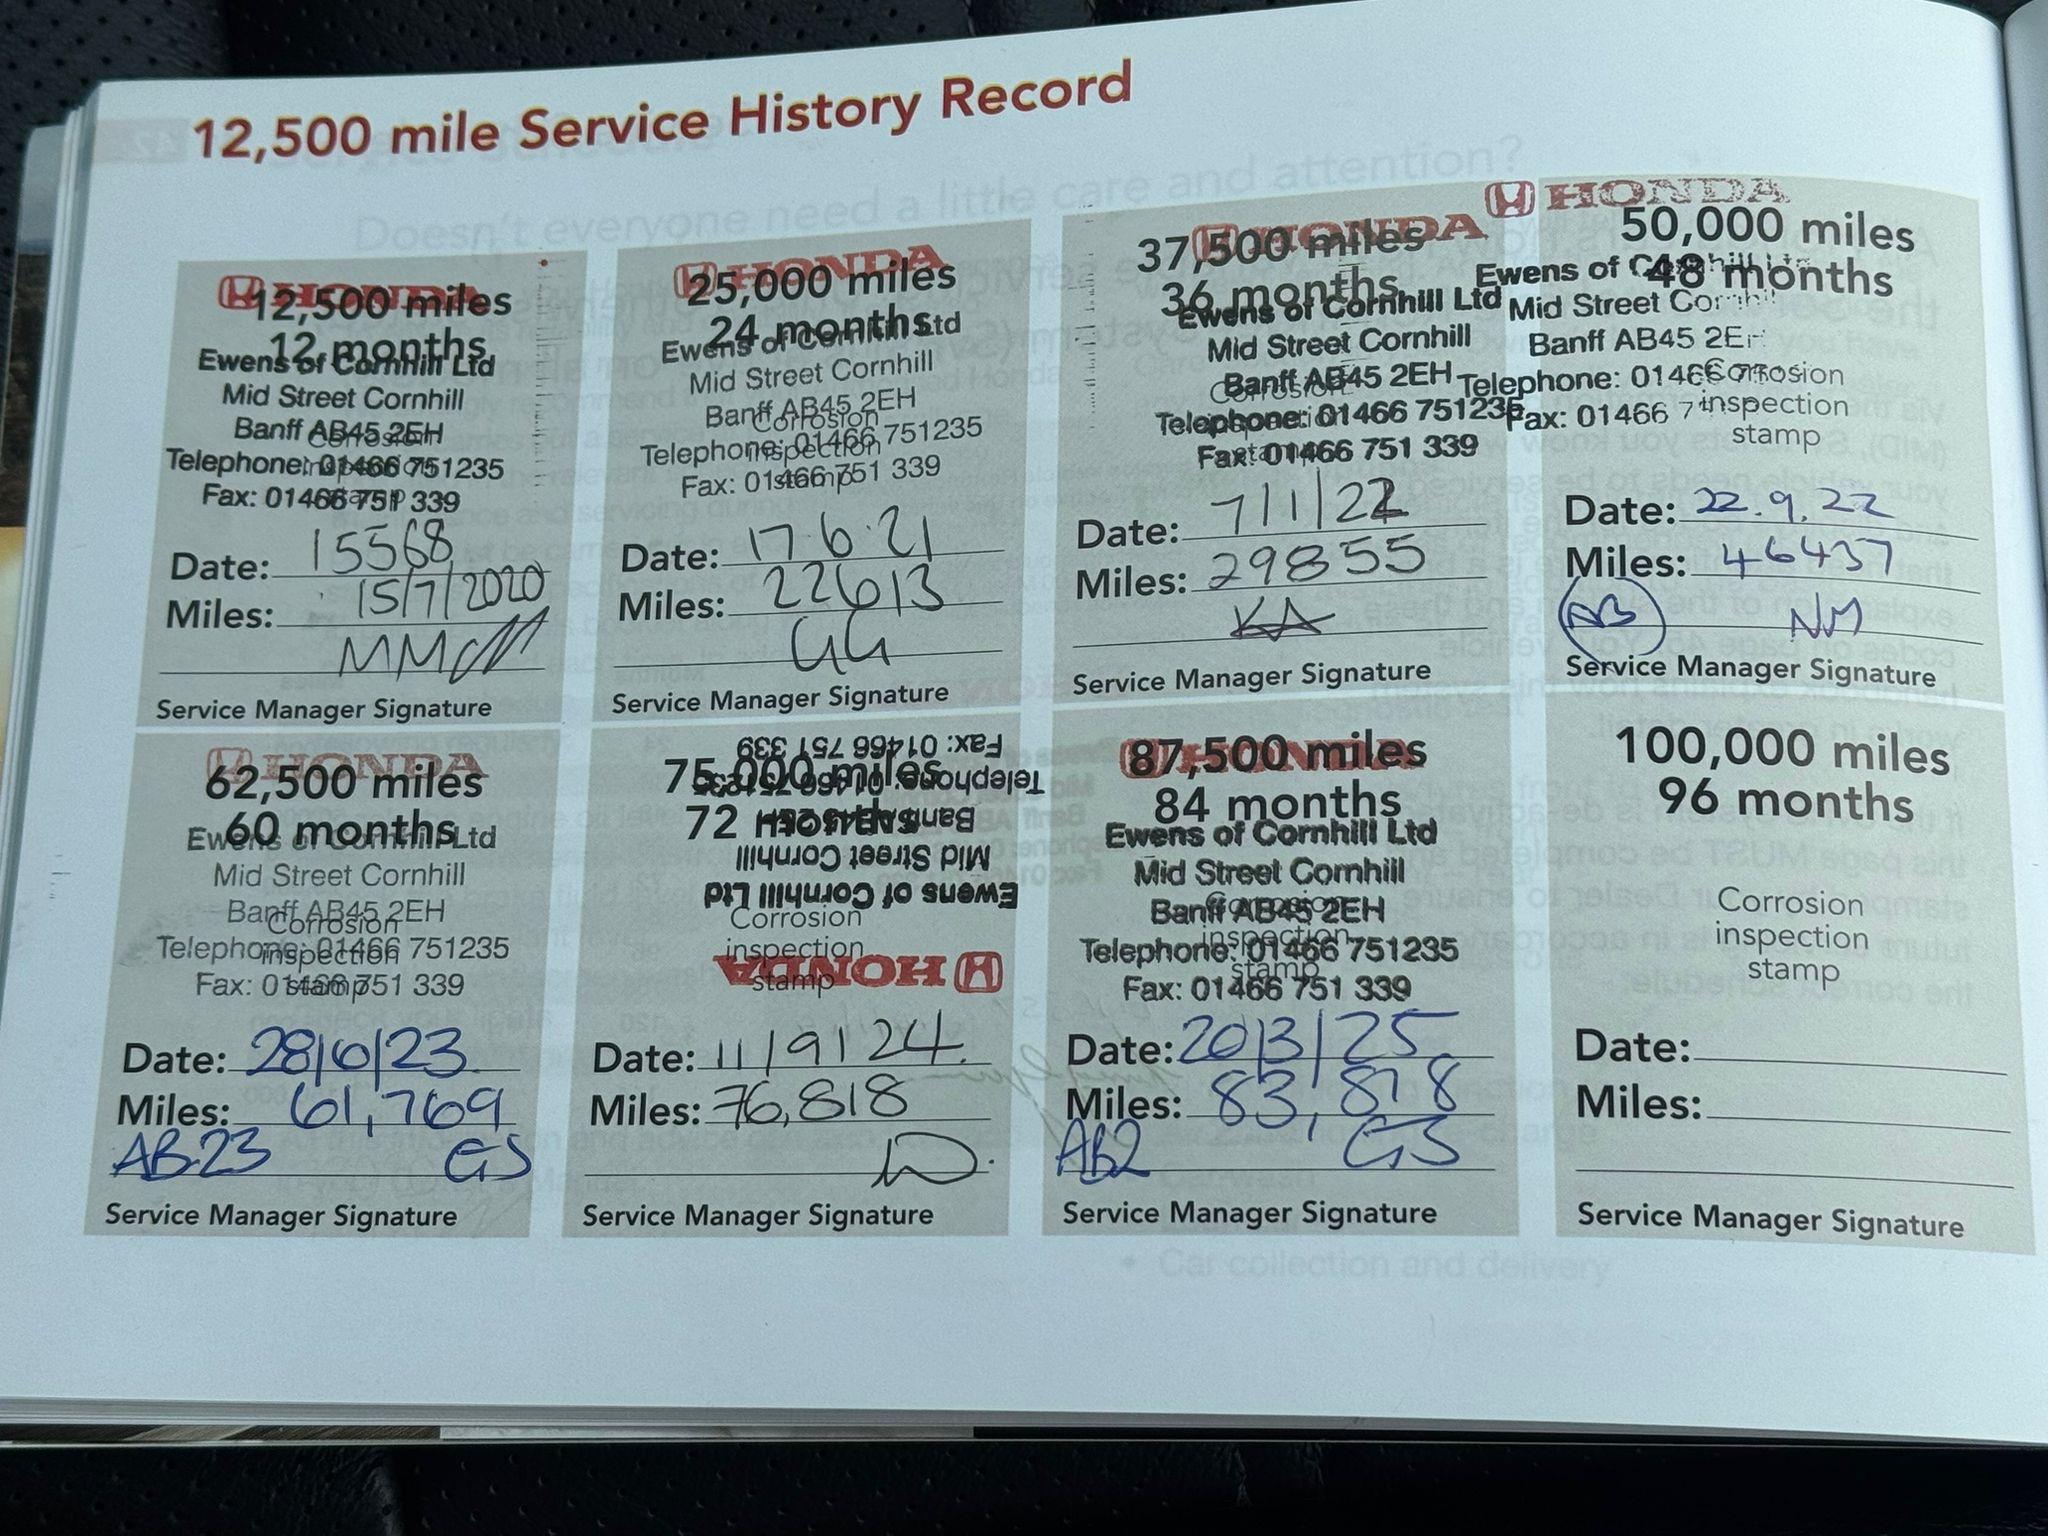 12,500 mile Service History Record
HONDA
12,500 miles
12 months
Ewens of Cornhill Ltd
Mid Street Cornhill
Banff AB45 2EH
Corrosion
Telephone: 01466 751235
inspection
Fax: 01466 751 339
stamp
Date: 15568
Miles: 15/7/2020
Service Manager Signature
HONDA
25,000 miles
24 months
Ewens of Cornhill Ltd
Mid Street Cornhill
Banff AB45 2EH
Corrosion
Telephone: 01466 751235
inspection
Fax: 01466 751 339
stamp
Date: 17.6.21
Miles: 22613
GG
Service Manager Signature
HONDA
37,500 miles
36 months
Ewens of Cornhill Ltd
Mid Street Cornhill
Banff AB45 2EH
Corrosion
Telephone: 01466 751235
inspection
Fax: 01466 751 339
stamp
Date: 7/1/22
Miles: 29855
KA
Service Manager Signature
HONDA
50,000 miles
48 months
Ewens of Cornhill Ltd
Mid Street Cornhill
Banff AB45 2EH
Corrosion
Telephone: 01466
inspection
Fax: 01466
stamp
Date: 22.9.22
Miles: 46437
AB NM
Service Manager Signature
HONDA
62,500 miles
60 months
Ewens of Cornhill Ltd
Mid Street Cornhill
Banff AB45 2EH
Corrosion
Telephone: 01466 751235
inspection
Fax: 01466 751 339
stamp
Date: 28/6/23
Miles: 61,769
AB23 GS
Service Manager Signature
75,000 miles
72 months
Corrosion
inspection
stamp
HONDA
Ewens of Cornhill Ltd
Mid Street Cornhill
Banff AB45 2EH
Telephone: 01466 751235
Fax: 01466 751 339
Date: 11/9/24
Miles: 76,818
Service Manager Signature
HONDA
87,500 miles
84 months
Ewens of Cornhill Ltd
Mid Street Cornhill
Banff AB45 2EH
Corrosion
Telephone: 01466 751235
inspection
stamp
Fax: 01466 751 339
Date: 20/3/25
Miles: 83,878
AB2 GS
Service Manager Signature
100,000 miles
96 months
Corrosion
inspection
stamp
Date:
Miles:
Service Manager Signature
Doesn't everyone need a little care and attention?
• Car collection and delivery